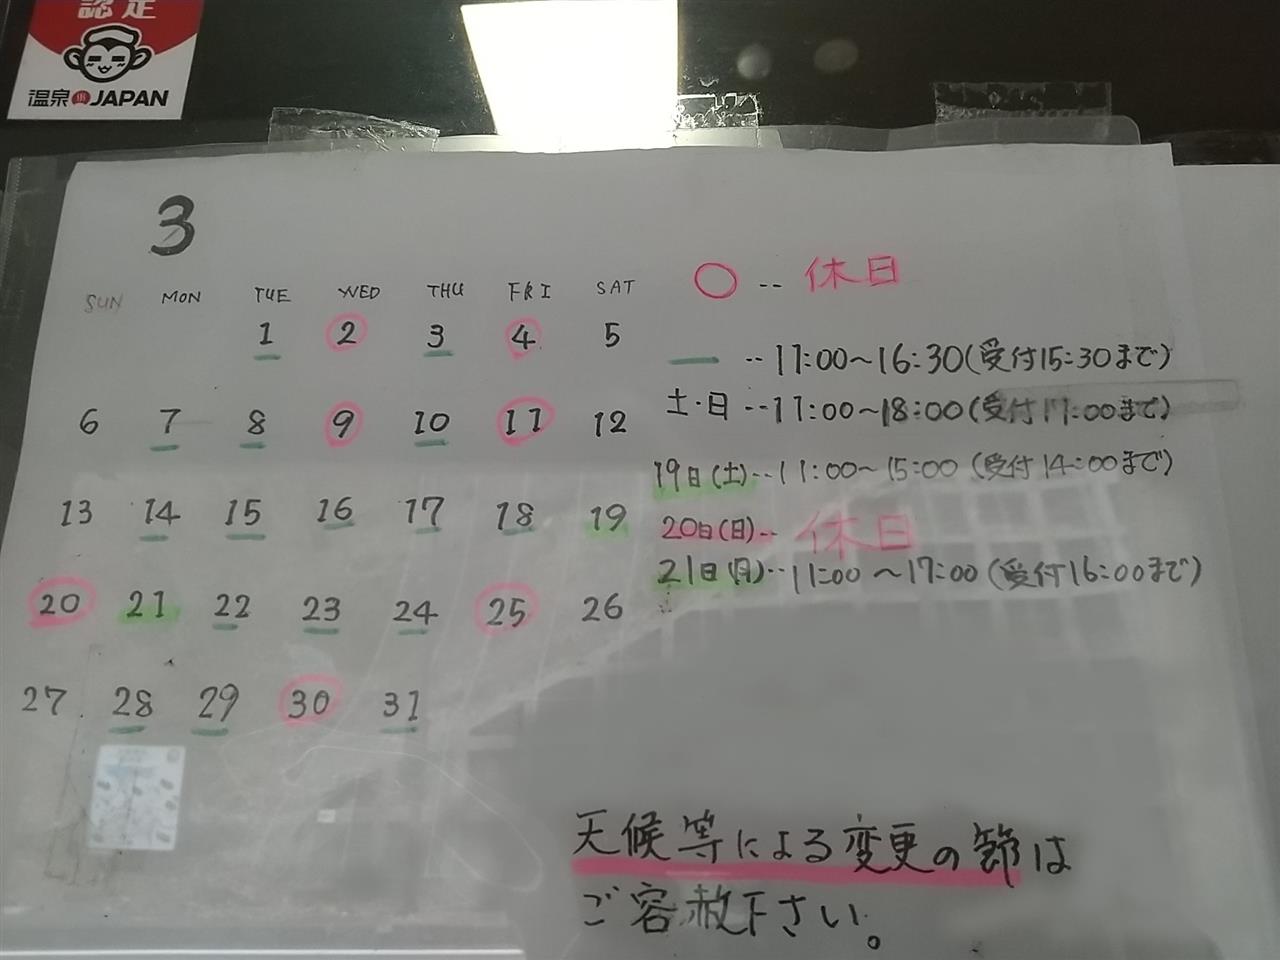 認定
温泉JAPAN
3
SUN MON TUE WED THU FRI SAT
1 2 3 4 5
6 7 8 9 10 11 12
13 14 15 16 17 18 19
20 21 22 23 24 25 26
27 28 29 30 31
○ -- 休日
-- 11:00～16:30(受付15:30まで)
土・日 -- 11:00～18:00(受付17:00まで)
19日(土)-- 11:00～15:00 (受付14:00まで)
20日(日)-- 休日
21日(月)-- 11:00～17:00 (受付16:00まで)
天候等による変更の節は
ご容赦下さい。